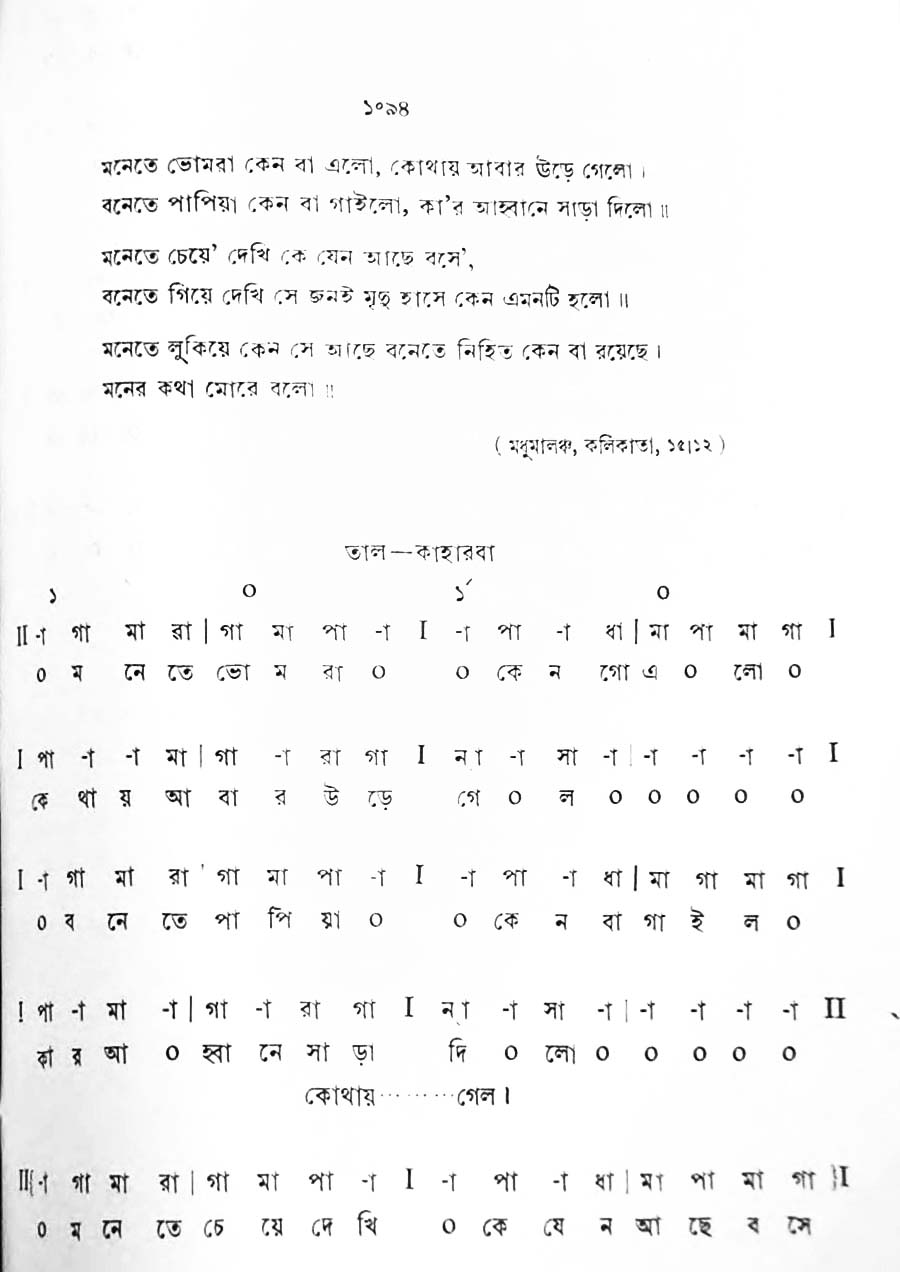 ১০৯৪
মনেতে ভোমরা কেন বা এলো, কোথায় আবার উড়ে গেলো।
বনেতে পাপিয়া কেন বা গাইলো, কা'র আহ্বানে সাড়া দিলো॥
মনেতে চেয়ে' দেখি কে যেন আছে বসে',
বনেতে গিয়ে দেখি সে জনই মৃদু হাসে কেন এমনটি হলো॥
মনেতে লুকিয়ে কেন সে আছে বনেতে নিহিত কেন বা রয়েছে।
মনের কথা মোরে বলো॥
( মধুমালঞ্চ, কলিকাতা, ১৫।১২ )
তাল—কাহারবা
১ ০ ১´ ০
II -া গা মা রা | গা মা পা -া I -া পা -া ধা | মা পা মা গা I
০ ম নে তে ভো ম রা ০ ০ কে ন গো এ ০ লো ০
I পা -া -া মা | গা -া রা গা I না্ -া সা -া | -া -া -া -া I
কে থা য় আ বা র উ ড়ে গে ০ ল ০ ০ ০ ০ ০
I -া গা মা রা ' গা মা পা -া I -া পা -া ধা | মা গা মা গা I
০ ব নে তে পা পি য়া ০ ০ কে ন বা গা ই ল ০
I পা -া মা -া | গা -া রা গা I না্ -া সা -া | -া -া -া -া II
কা র আ ০ হ্বা নে সা ড়া দি ০ লো ০ ০ ০ ০ ০
কোথায়·········গেল।
II{ -া গা মা রা | গা মা পা -া I -া পা -া ধা | মা পা মা গা }I
০ ম নে তে চে য়ে দে খি ০ কে যে ন আ ছে ব সে